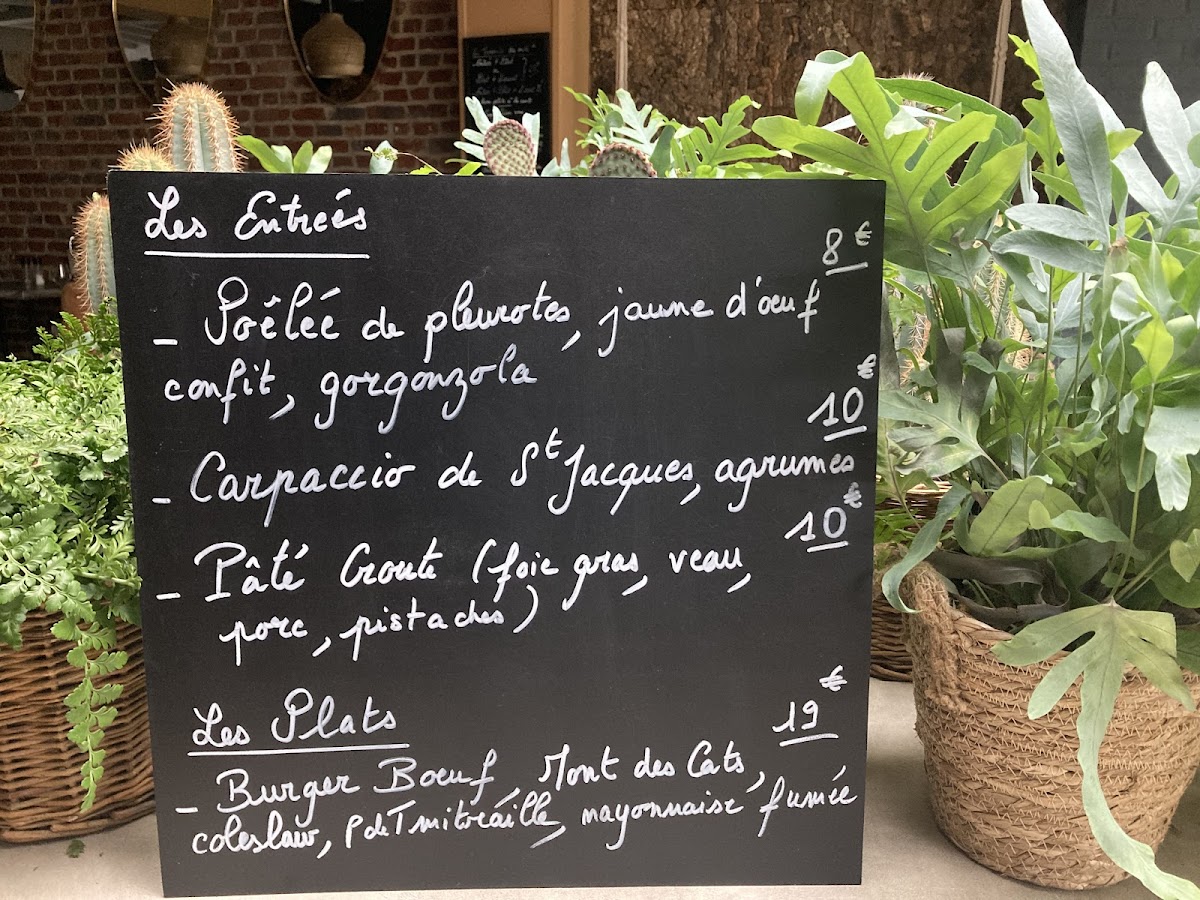 Les Entreés
8€
- Poêleé de pleurotes, jaune d'oeuf
confit, gorgonzola
10€
- Carpaccio de St Jacques, agrumes
10€
- Pâté Croute (foie gras, veau,
porc, pistaches)
Les Plats
19€
- Burger Boeuf, Mont des Cats,
coleslaw, P de T mitraille, mayonnaise fumée